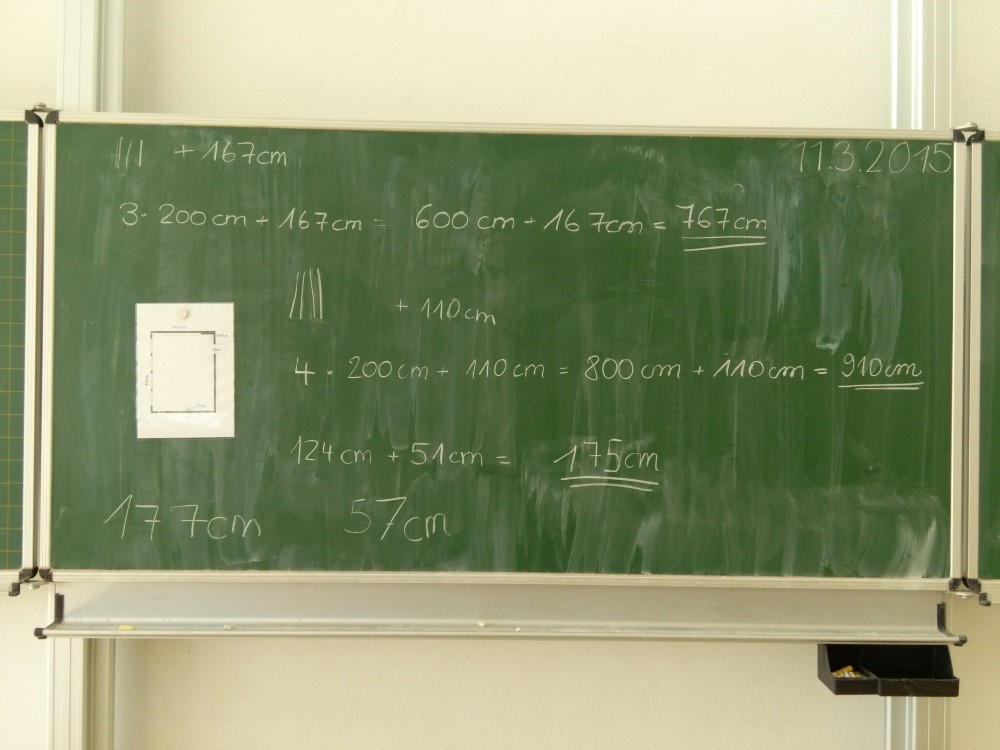 ||| + 167cm
11.3.2015
3 · 200cm + 167cm = 600cm + 167cm = 767cm
|||| + 110cm
4 · 200cm + 110cm = 800cm + 110cm = 910cm
124cm + 51cm = 175cm
177cm 57cm